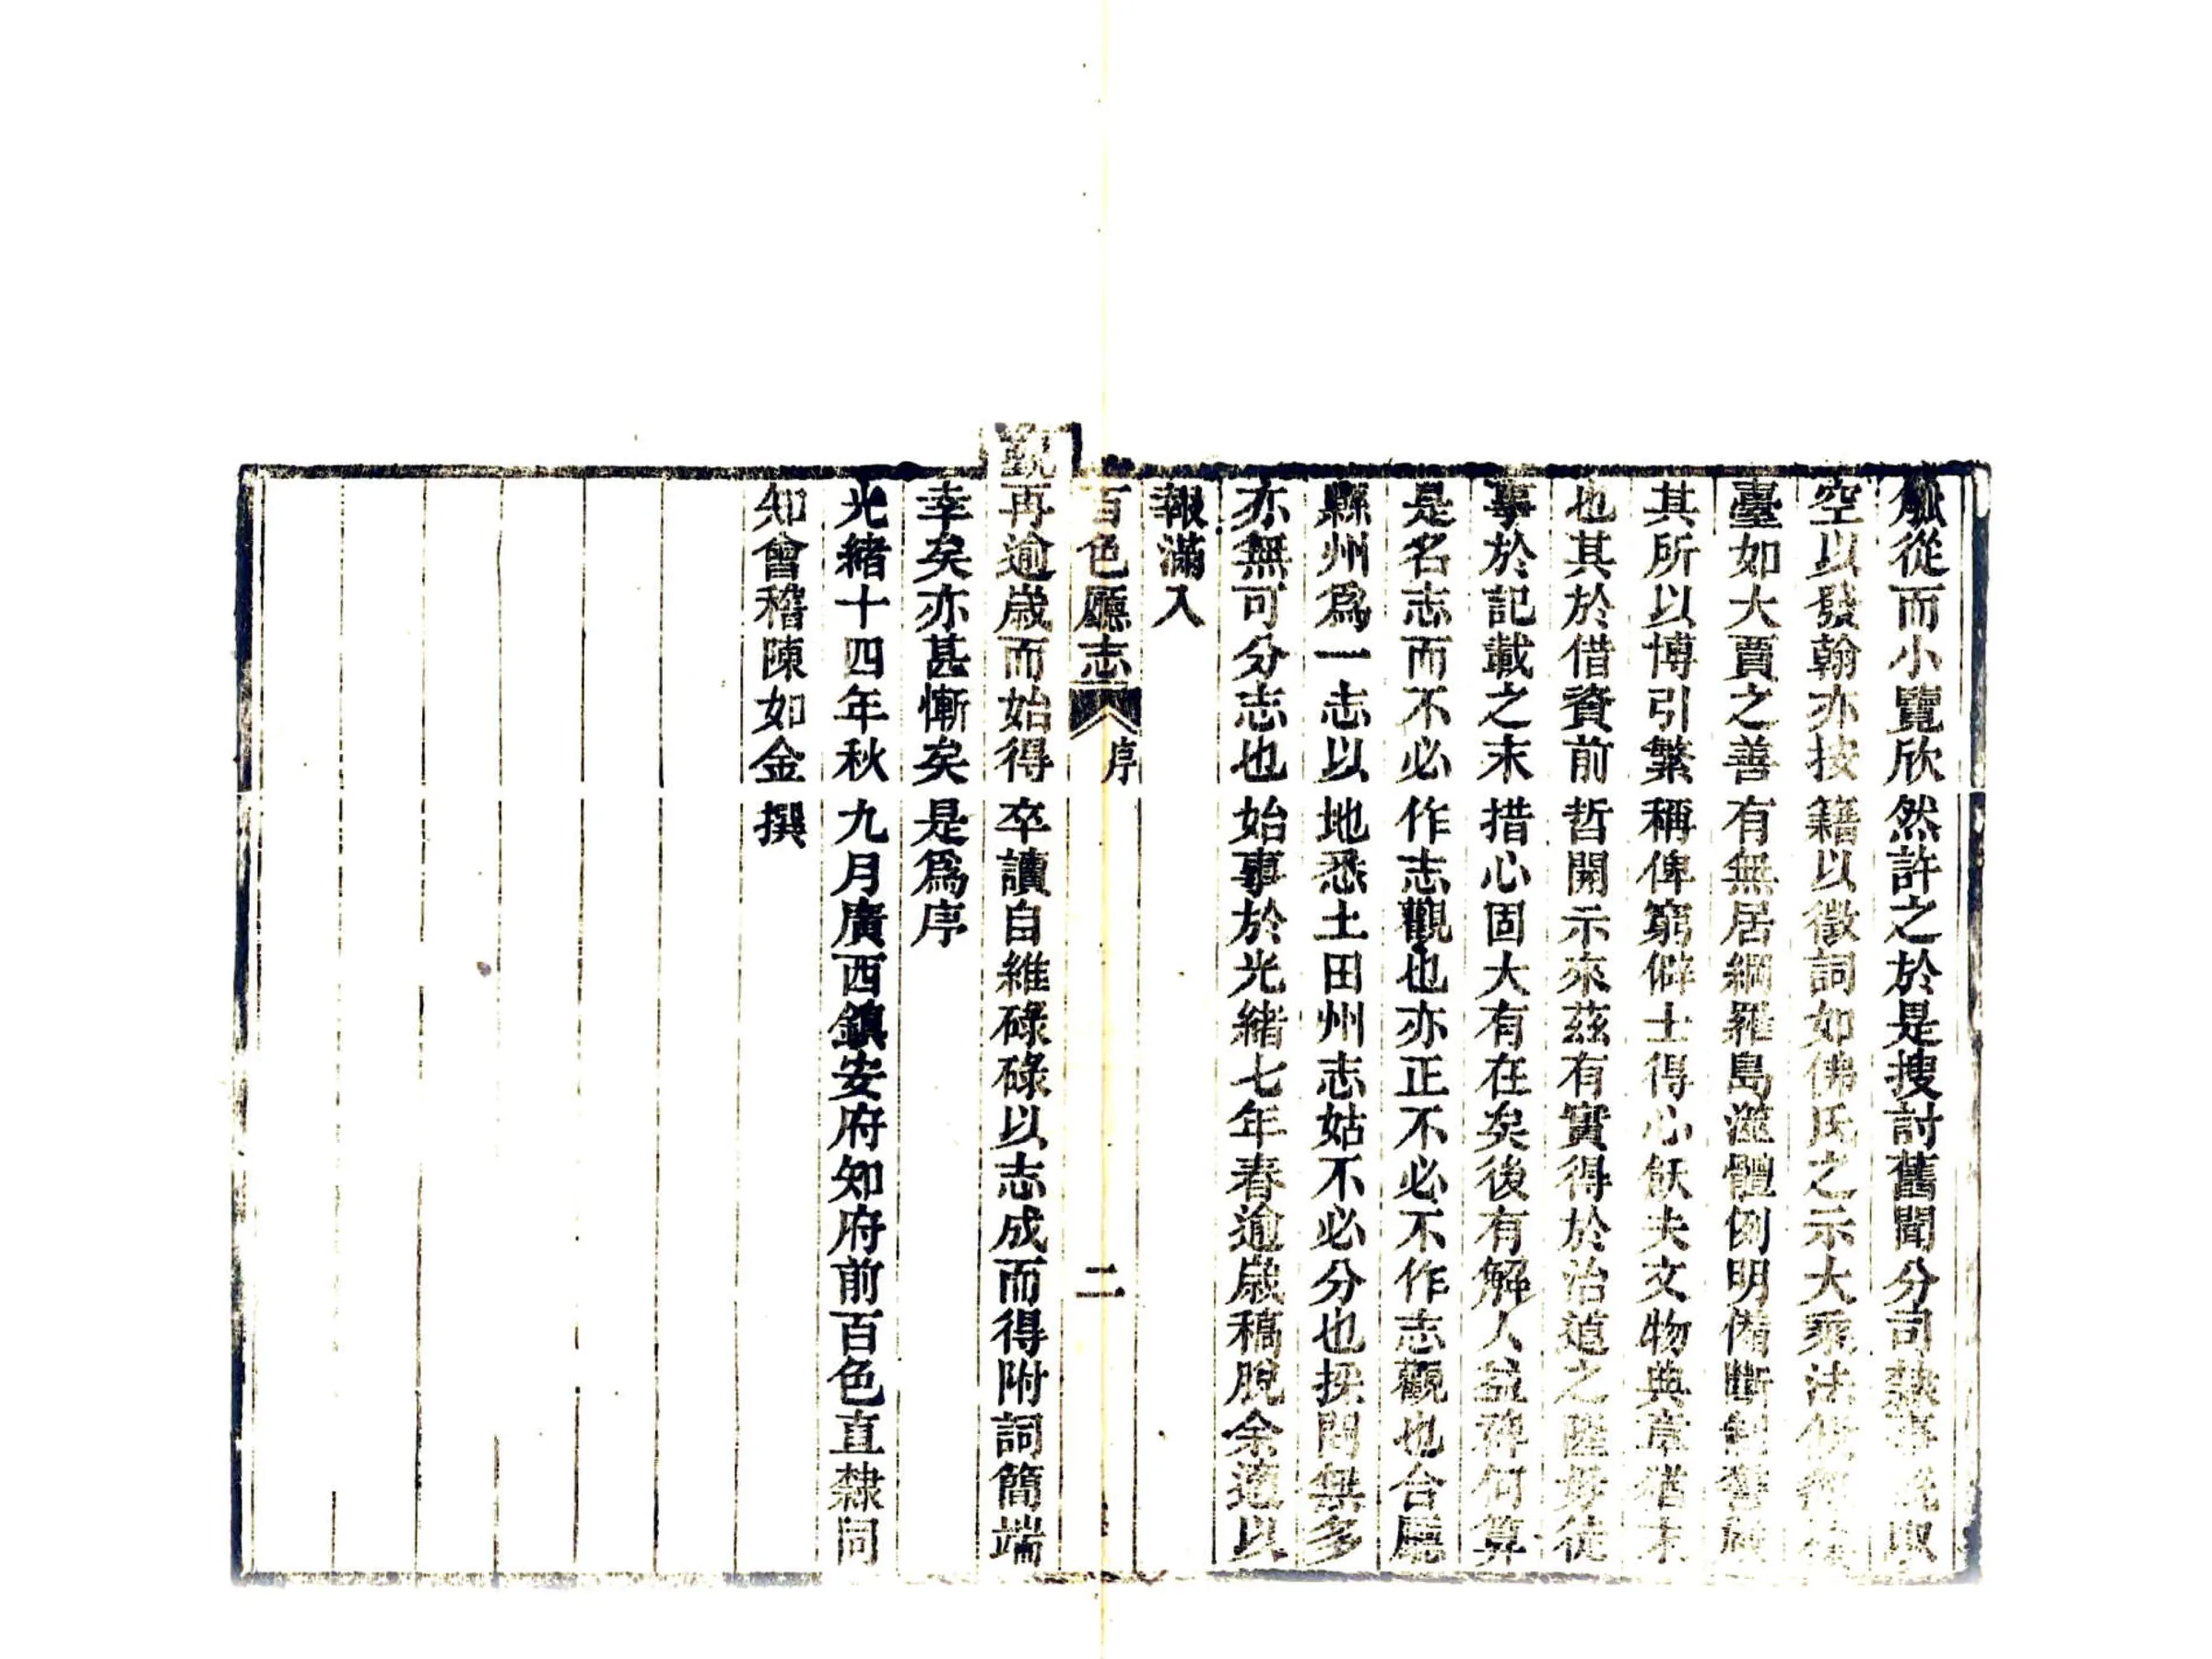 觚從而小覽欣然許之於是搜討舊聞分司執事既取
空以發翰亦按籍以徵詞如佛氏之示大乘法
臺如大賈之善有無居綱羅島灉體例明備斷制奮嚴
其所以博引繁稱俾窮僻士得心飫夫文物典章猶末
也其於借資前哲開示來茲有實得於治道之陞好徒
事於記載之末措心固大有在矣後有解人益碑何算
是名志而不必作志觀也亦正不必不作志觀也合廳
縣州爲一志以地悉土田州志姑不必分也採問無多
亦無可分志也始事於光緒七年春逾歲稿脫余適以
報滿入
百色廳志 序 二
覲再逾歲而始得卒讀自維碌碌以志成而得附詞簡端
幸矣亦甚慚矣是爲序
光緒十四年秋九月廣西鎮安府知府前百色直隸同
知會稽陳如金撰